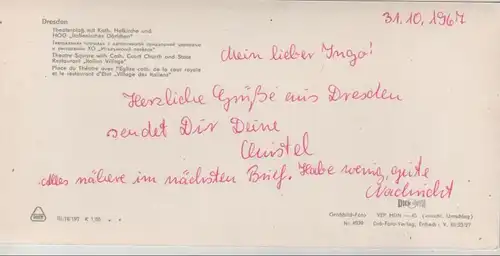 Dresden
Theaterplatz mit Kath. Hofkirche und
HOG „Italienisches Dörfchen"
Театральная площадь с католической придворной церковью
и рестораном ХО
Theatre Square with Cath. Court Church and State
Restaurant „Italian Village"
Place du Théâtre avec l'Église cath. de la cour royale
et le restaurant d'État „Village des Italiens"
31.10.1967
Mein lieber Ingo!
Herzliche Grüße aus Dresden
sendet Dir Deine
Christel
Alles nähere im nächsten Brief. Habe wenig gute
Nachricht